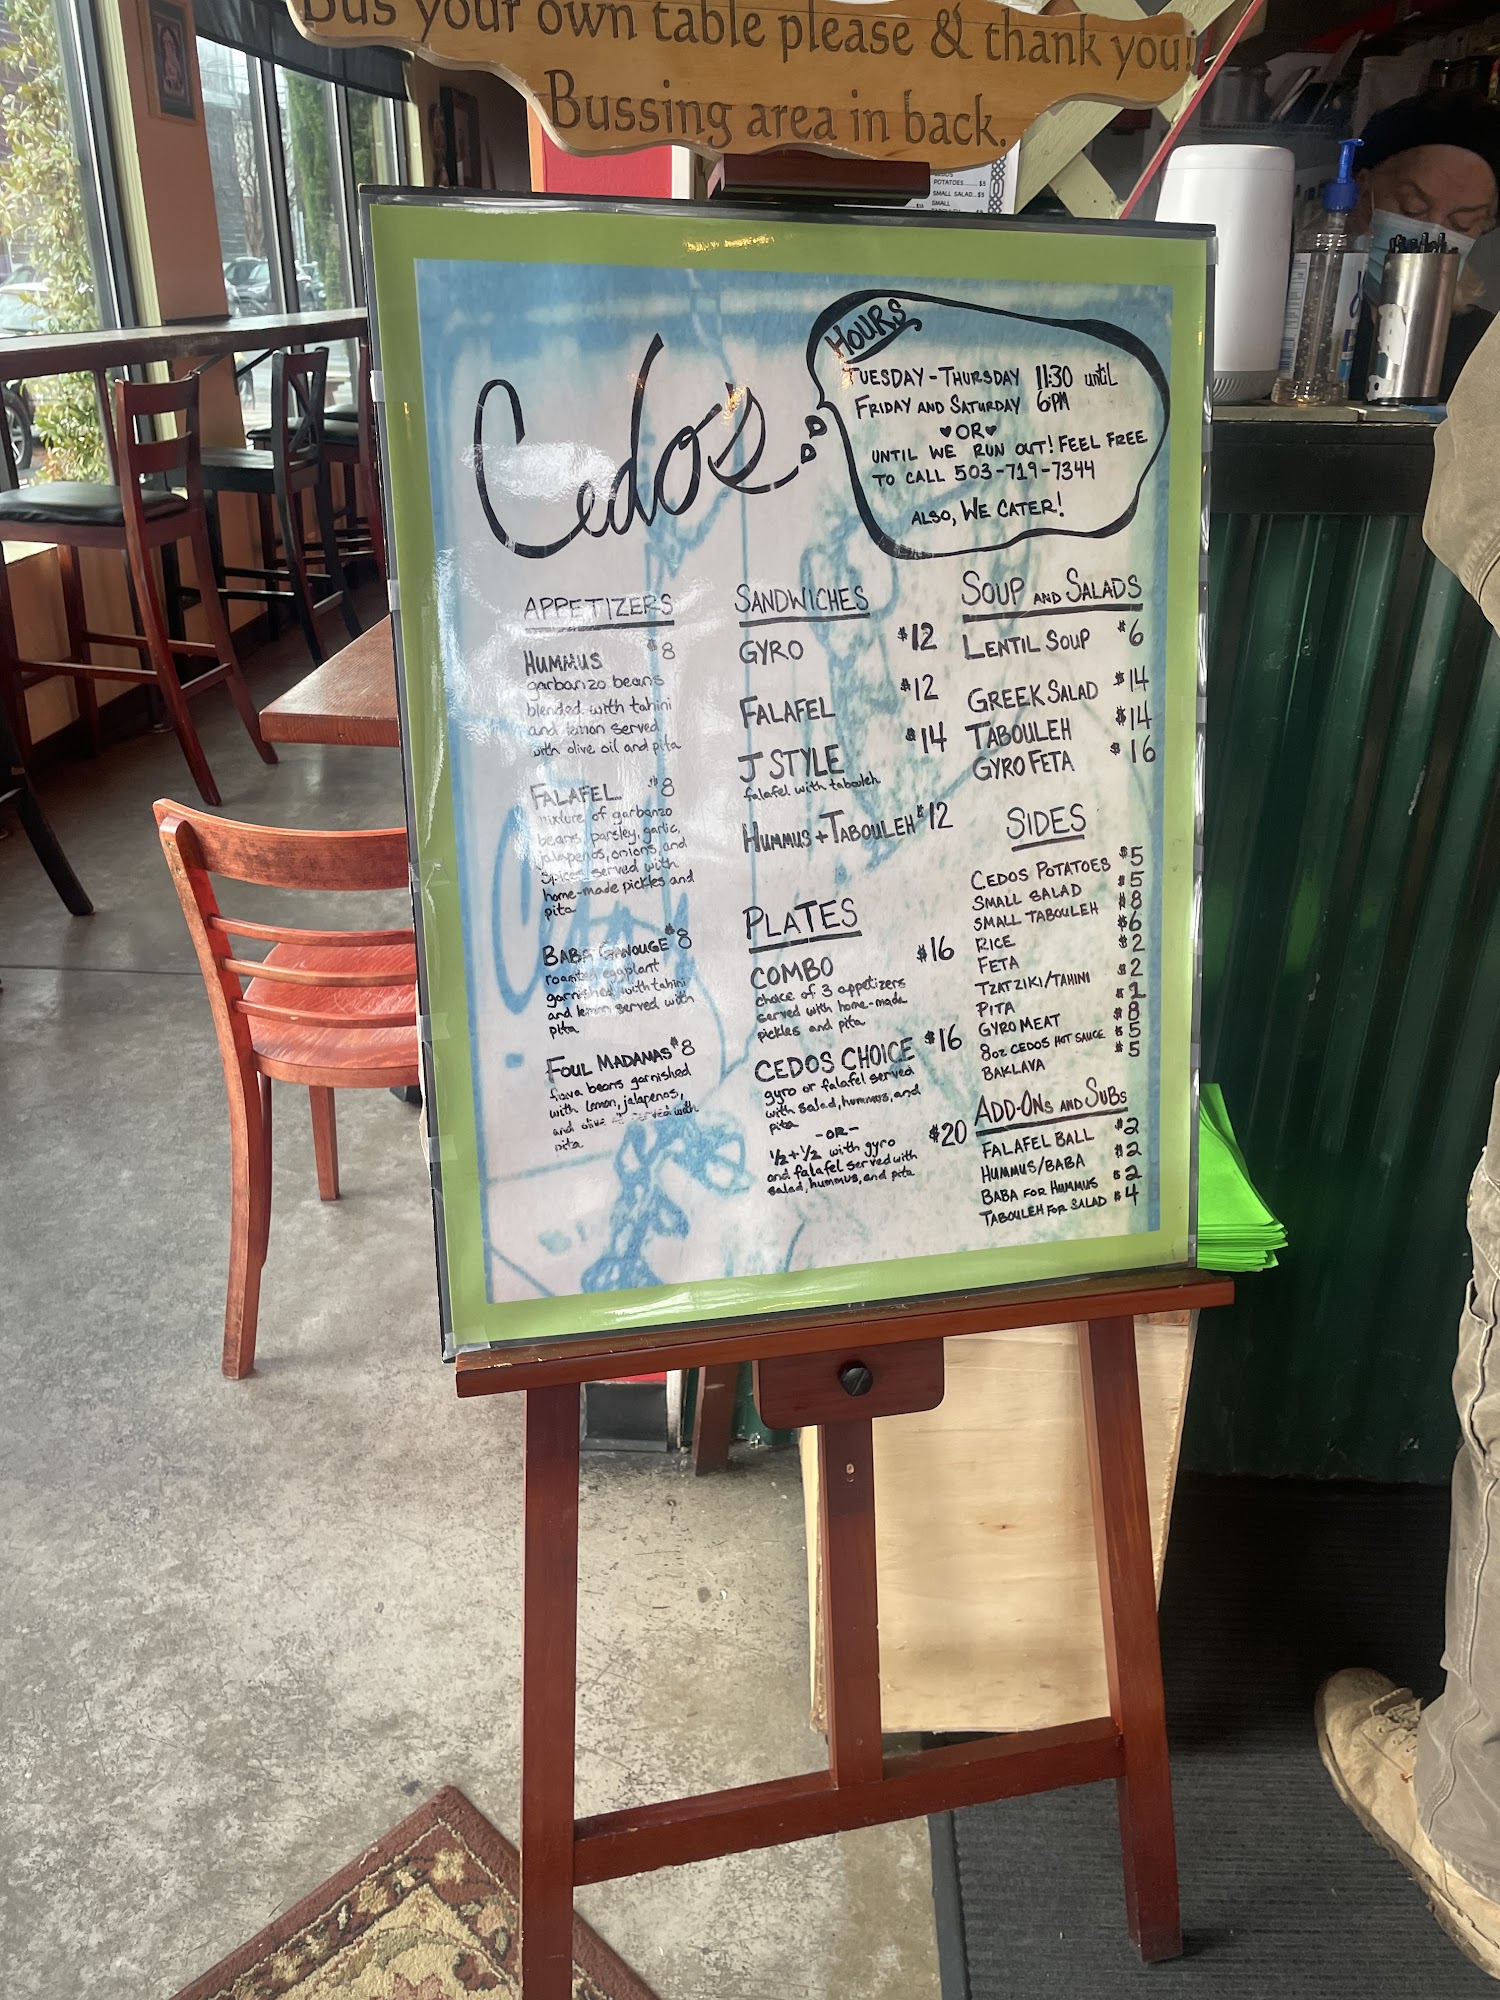 Bus your own table please & thank you!!
Bussing area in back.
POTATOES.........$5
SMALL SALAD...$5
SMALL
Cedo's
HOURS
TUESDAY - THURSDAY 11:30 until
FRIDAY AND SATURDAY 6PM
♥OR♥
UNTIL WE RUN OUT! FEEL FREE
TO CALL 503-719-7344
ALSO, WE CATER!
APPETIZERS
HUMMUS $8
garbanzo beans
blended with tahini
and lemon served
with olive oil and pita
FALAFEL $8
mixture of garbanzo
beans, parsley, garlic,
jalapenos, onions, and
spices served with
home-made pickles and
pita
BABA GANOUGE $8
roasted eggplant
garnished with tahini
and lemon served with
pita
FOUL MADAMAS $8
fava beans garnished
with lemon, jalapenos,
and olive served with
pita
SANDWICHES
GYRO $12
FALAFEL $12
J STYLE $14
falafel with tabouleh
HUMMUS + TABOULEH $12
PLATES
COMBO $16
choice of 3 appetizers
served with home-made
pickles and pita
CEDOS CHOICE $16
gyro or falafel served
with salad, hummus, and
pita
-OR-
1/2 + 1/2 with gyro $20
and falafel served with
salad, hummus, and pita
SOUP AND SALADS
LENTIL SOUP $6
GREEK SALAD $14
TABOULEH $14
GYRO FETA $16
SIDES
CEDOS POTATOES $5
SMALL SALAD $5
SMALL TABOULEH $8
RICE $6
FETA $2
TZATZIKI/TAHINI $2
PITA $1
GYRO MEAT $8
8oz CEDOS HOT SAUCE $5
BAKLAVA $5
ADD-ONS AND SUBS
FALAFEL BALL $2
HUMMUS/BABA $2
BABA FOR HUMMUS $2
TABOULEH FOR SALAD $4